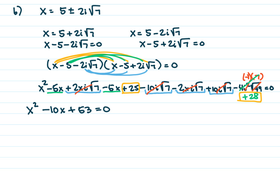 b) x = 5 ± 2i√7
x = 5 + 2i√7 x = 5 - 2i√7
x - 5 - 2i√7 = 0 x - 5 + 2i√7 = 0
(x - 5 - 2i√7)(x - 5 + 2i√7) = 0
(-1)(7)
x² - 5x + 2xi√7 - 5x + 25 - 10i√7 - 2xi√7 + 10i√7 - 4i²√49 = 0
+28
x² - 10x + 53 = 0